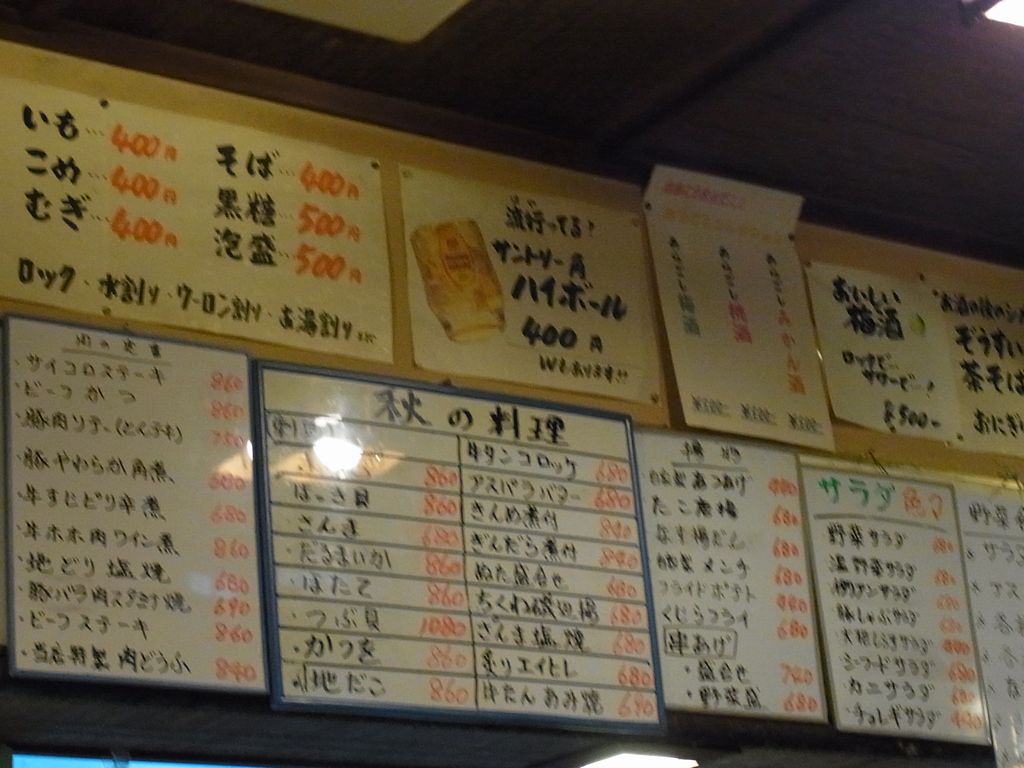 いも…400円
こめ…400円
むぎ…400円
そば…400円
黒糖…500円
泡盛…500円
ロック・水割り・ウーロン割り・お湯割り etc
流行ってる!
サントリー角
ハイボール
400円
Wもあります!!
あらごしみかん酒
あらごし桃酒
あらごし梅酒
おいしい
梅酒
ロックで…
サワーで…!
ぞうすい
茶そば
おにぎ
肉の定番
・サイコロステーキ 860
・ビーフかつ 860
・豚肉ソテー(とんテキ)
・豚やわらか角煮
・牛すじピリ辛煮 680
・牛ホホ肉ワイン煮 860
・地どり塩焼 680
・豚バラ肉スタミナ焼 690
・ビーフステーキ 860
・当店特製 肉どうふ 840
秋の料理
860
ほっき貝 860
・さんま 680
・だるまいか 860
・はたて 860
・つぶ貝 1080
・かつを 860
・地だこ 860
牛タンコロッケ 680
アスパラバター 680
きんめ煮付 840
ぎんだら煮付 840
ぬた盛合せ 680
ちくわ磯辺揚 680
さんま塩焼 680
炙りエイヒレ 680
牛たんあみ焼 690
揚物
自家製あつあげ
たこ唐揚 680
なす揚だし 680
自家製メンチ 680
フライドポテト
くじらフライ 680
串あげ
・盛合せ 780
・野菜盛 680
サラダ
野菜サラダ 680
温野菜サラダ
豚しゃぶサラダ
大根じゃこサラダ
シーフードサラダ 680
カニサラダ 680
・チョレギサラダ
野菜